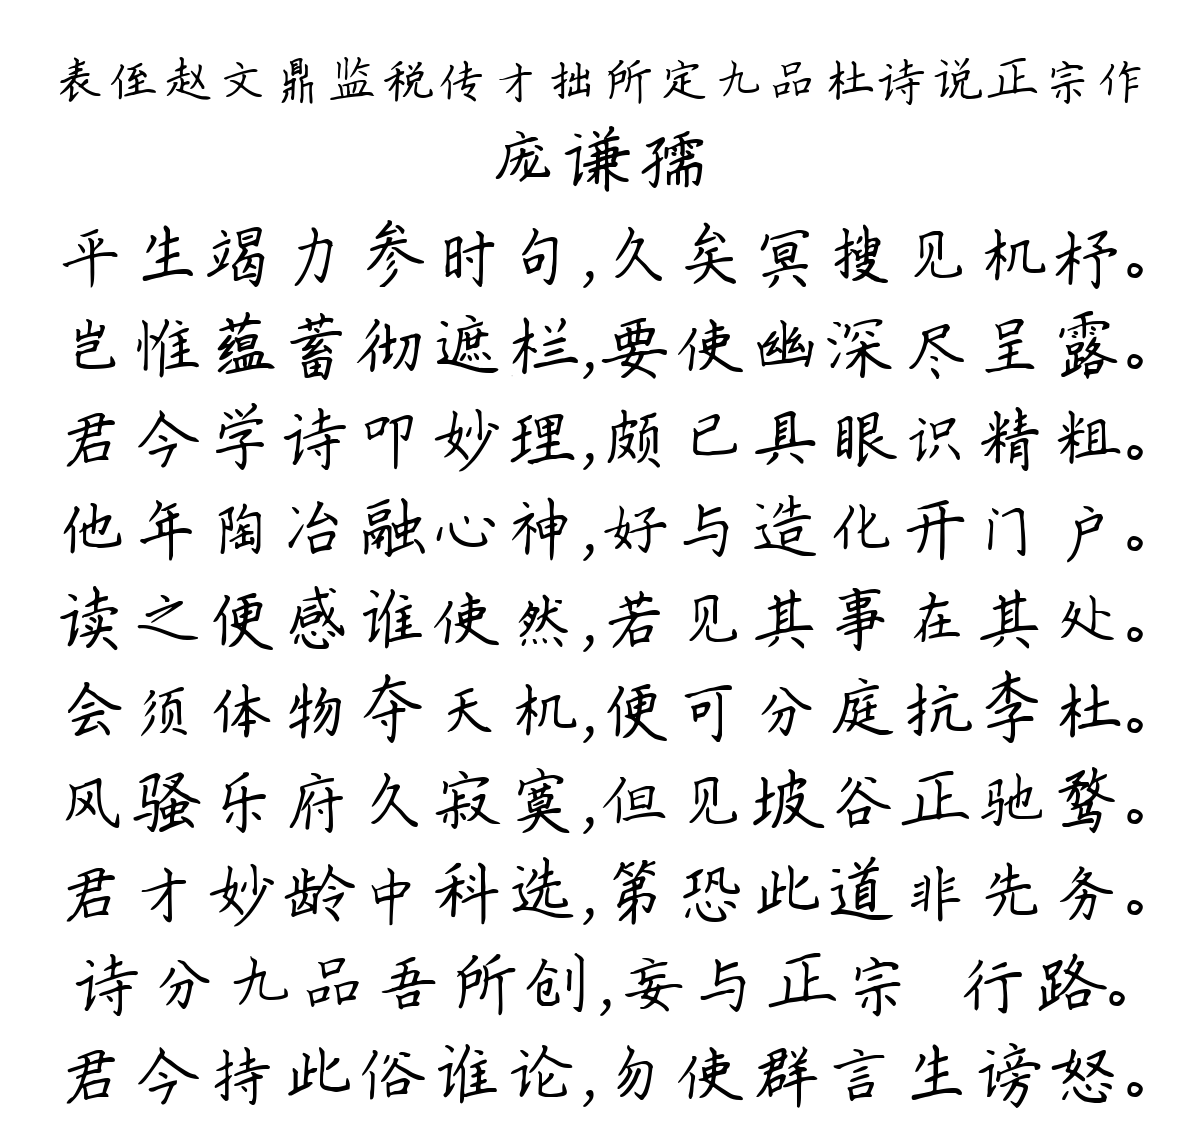 表侄赵文鼎监税传才拙所定九品杜诗说正宗作
庞谦孺
平生竭力参时句,久矣冥搜见机杼。
岂惟蕴蓄彻遮栏,要使幽深尽呈露。
君今学诗叩妙理,颇已具眼识精粗。
他年陶冶融心神,好与造化开门户。
读之便感谁使然,若见其事在其处。
会须体物夺天机,便可分庭抗李杜。
风骚乐府久寂寞,但见坡谷正驰鹜。
君才妙龄中科选,第恐此道非先务。
诗分九品吾所创,妄与正宗 行路。
君今持此俗谁论,勿使群言生谤怒。